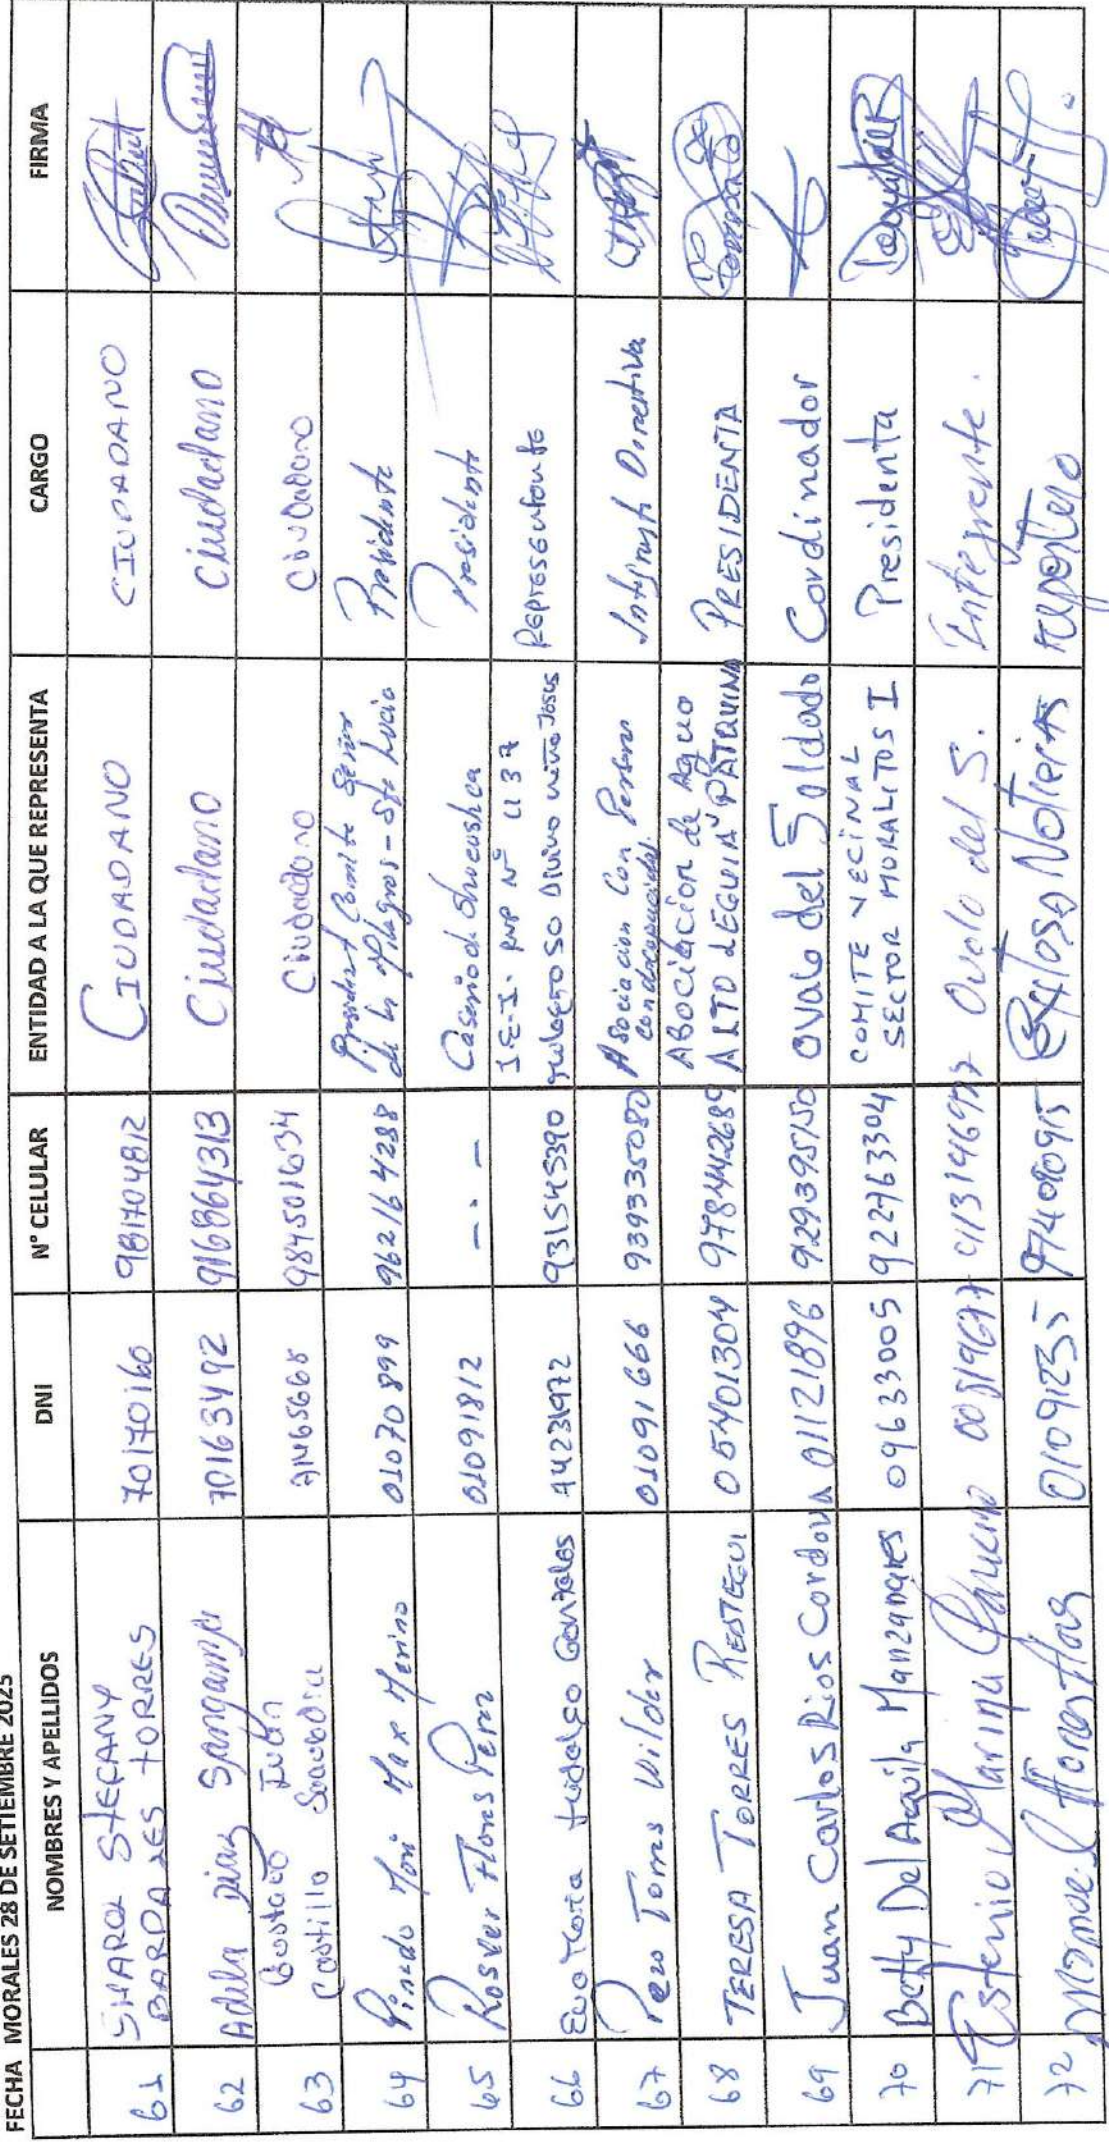 FECHA MORALES 28 DE SETIEMBRE 2025
NOMBRES Y APELLIDOS DNI N° CELULAR ENTIDAD A LA QUE REPRESENTA CARGO FIRMA
61 SHAROL STEFANY BARDALES TORRES 70170160 981704812 CIUDADANO CIUDADANO
62 Adela Diaz Sangama 70163492 916864313 Ciudadano Ciudadano
63 Gustavo Iván Castillo Saavedra 984501634 Ciudadano Ciudadano
64 Pinedo Max Merino 01070899 962164288 Comité Señor de los Milagros - Sta Lucia Presidente
65 Rosver Flores Perez 01091812 -.- Presidente
66 Eva Maria Hidalgo Gonzales 44231972 931545390 I.E.I. N° 1137 Milagroso Divino niño Jesus Representante
67 Pezo Torres Wilder 01091666 939335080 Asociacion Con Persona con discapacidad Integrante Directiva
68 TERESA TORRES RESTEGUI 05401304 978442689 ABOCIACION de Agua ALTO LEGUIA PATQUINA PRESIDENTA
69 Juan Carlos Rios Cordova 01121896 929395150 Ovalo del Soldado Cordinador
70 Betty Del Aguila Manzanares 09633005 922763304 COMITE VECINAL SECTOR MORALITOS I Presidenta
71 Ovalo del S. Integrante.
72 01091235 974090915 Exitosa Noticias reportero